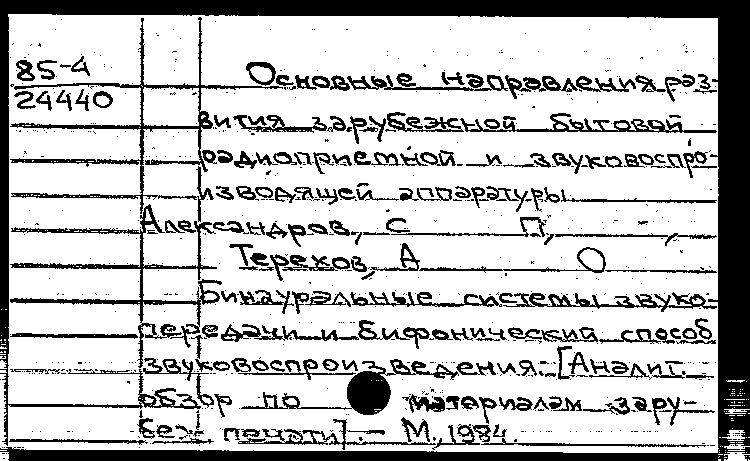 85-4
24440
Основные направления раз-
вития зарубежной бытовой
радиоприемной и звуковоспро-
изводящей аппаратуры
Александров, С П,
Терехов, А О
Бинауральные системы звуко-
передачи и бифонический способ
звуковоспроизведения.-[Аналит.
обзор по материалам зару-
беж- печати].- М., 1984.